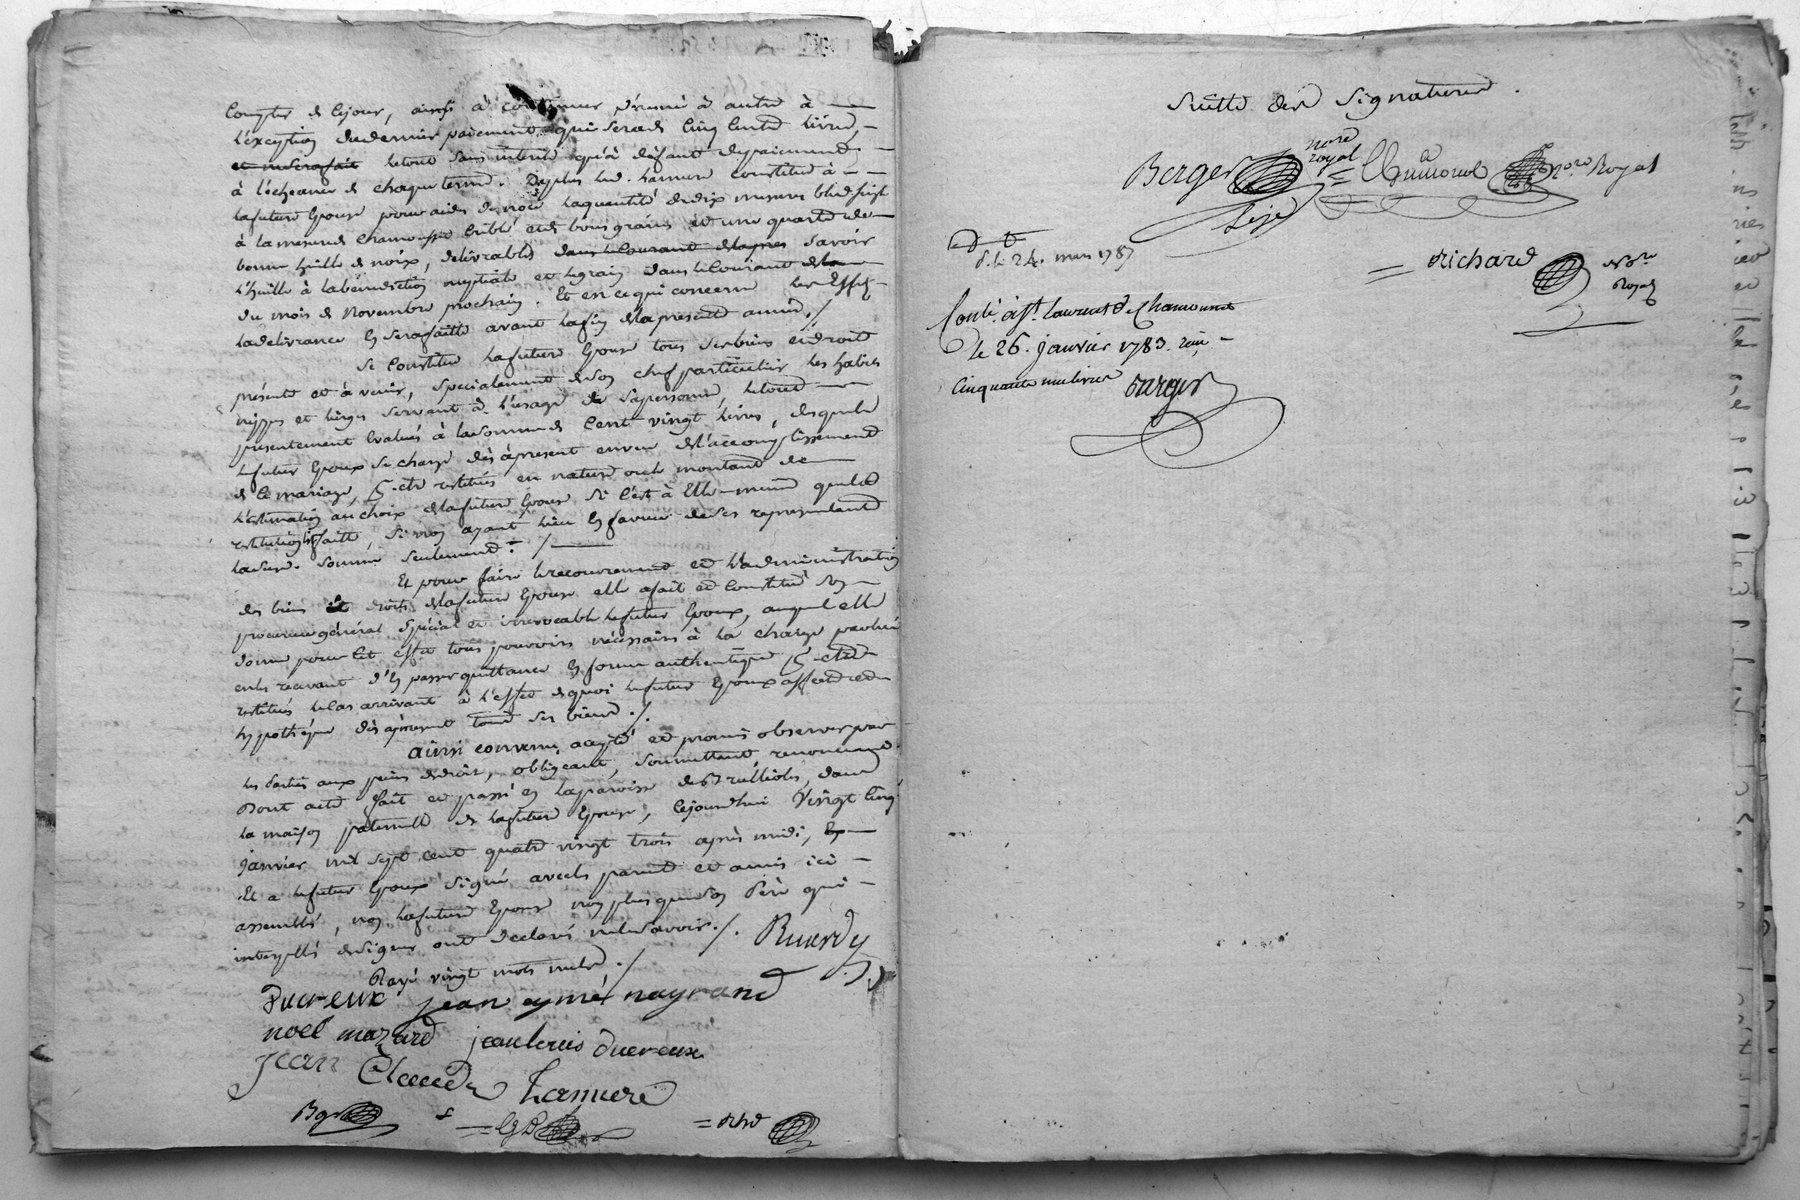 Compter de cejour, ainsi à continuer d'année à autre à
l'exception du dernier paiement qui sera de Cinq Cents livres,
et ne sera fait letout sans intérêt qu'à défaut de paiement
à l'echeance de chaque terme. Deplus led. Lannure constitue à
lafuture Epouse pour aides de noce laquantité de dix mesures bled seigle
à lamesure de Chamousset Criblé et de bons grains et une quarte de
bonne huille de noix, délivrables dans le Courant de la Savoir
l'huille à labénédiction nuptiale et legrain dans le Courant de la
du mois de Novembre prochain. Et en ce qui concerne les Effets
ladelivrance En serafaitte avant lafin delapresente année ./
Se Constitue lafuture Epouse tous ses biens et droits
présents et à venir, spécialement de son chef particulier les habits
nippes et linges servant à l'usage de sapersonne, letout
presentement Evalués à lasomme de Cent vingt livres, desquels
lefutur Epoux se charge dès àpresent en vue del'accomplissement
de ce mariage, Et restitués en nature ou le montant de
l'estimation au choix delafuture Epouse si c'est à Elle-même que la
restitution est faitte, si non ayant lieu En faveur de ses représentants
lad. somme seulement ./
Et pour faire lerecouvrement et l'administration
des biens et droits delafuture Epouse elle afait et Constitué son
procureur général spécial et irrevocable lefutur Epoux, auquel elle
donne pour Cet effet tous pouvoirs nécessaires à la charge par lui
en les recevant d'En passer quittance En forme authentique Et
restitués le Cas arrivant à l'effet de quoi lefutur Epoux affecte et
hypothéque dès àpresent tous ses biens ./.
ainsi convenu, accepté et promis observer par
les Parties aux peines de droit, obligeant, soumettant, renonceant
Dont acte fait et passé En laparoisse des Trulliolas, dans
la maison paternelle de lafuture Epouse, Cejourd'hui Vingt Cinq
janvier mil sept cent quatre vingt trois après midi,
Et a lefutur Epoux signé avec les parents et amis ici
assemblés, non lafuture Epouse non plus que son Père qui
interpellés de signer ont déclaré ne le savoir ./. Ruardy
Rayé vingt mots nuls ./
Ducreux jean aymé nayrand
noel mazard jean louis ducreux
Jean Claude Lannure
Bgr = = Rhd
Suitte des Signatures.
Berger nore royal = nore Royal
Lejé
d. le 24. mars 1787
= Richard nore Royal
Contlé. à St. Laurent de Chamousset
le 26. janvier 1783. reçu
Cinquante un livres Barges